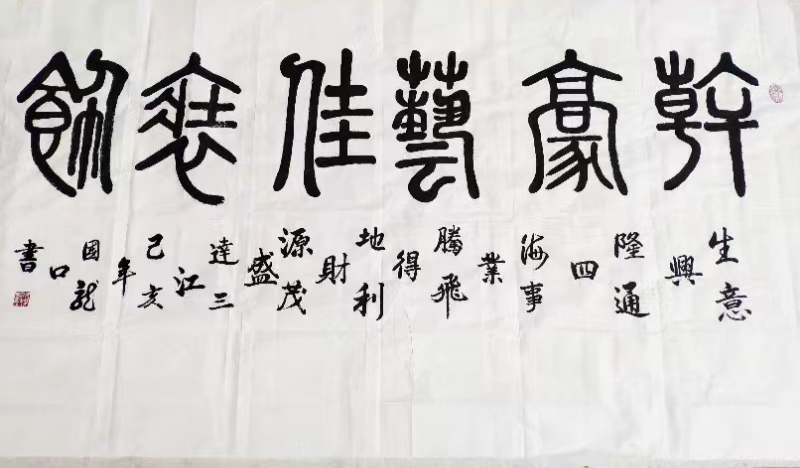 幹豪藝佳裝飾
生意
興
隆通
四
海事
業
騰飛
得
地利
財
源茂
盛
達三
江
己亥
年
國龍
口
書